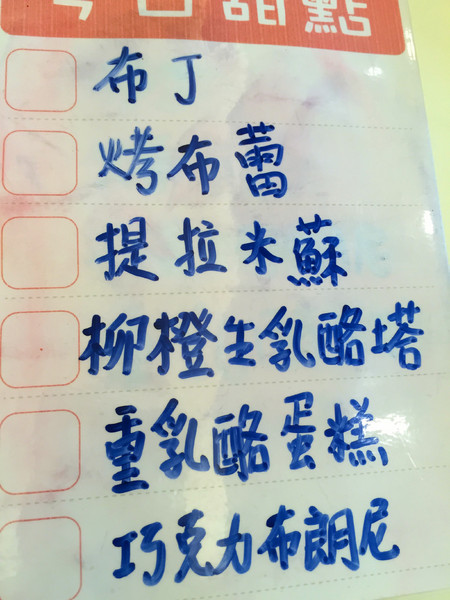 今日甜點
布丁
烤布蕾
提拉米蘇
柳橙生乳酪塔
重乳酪蛋糕
巧克力布朗尼